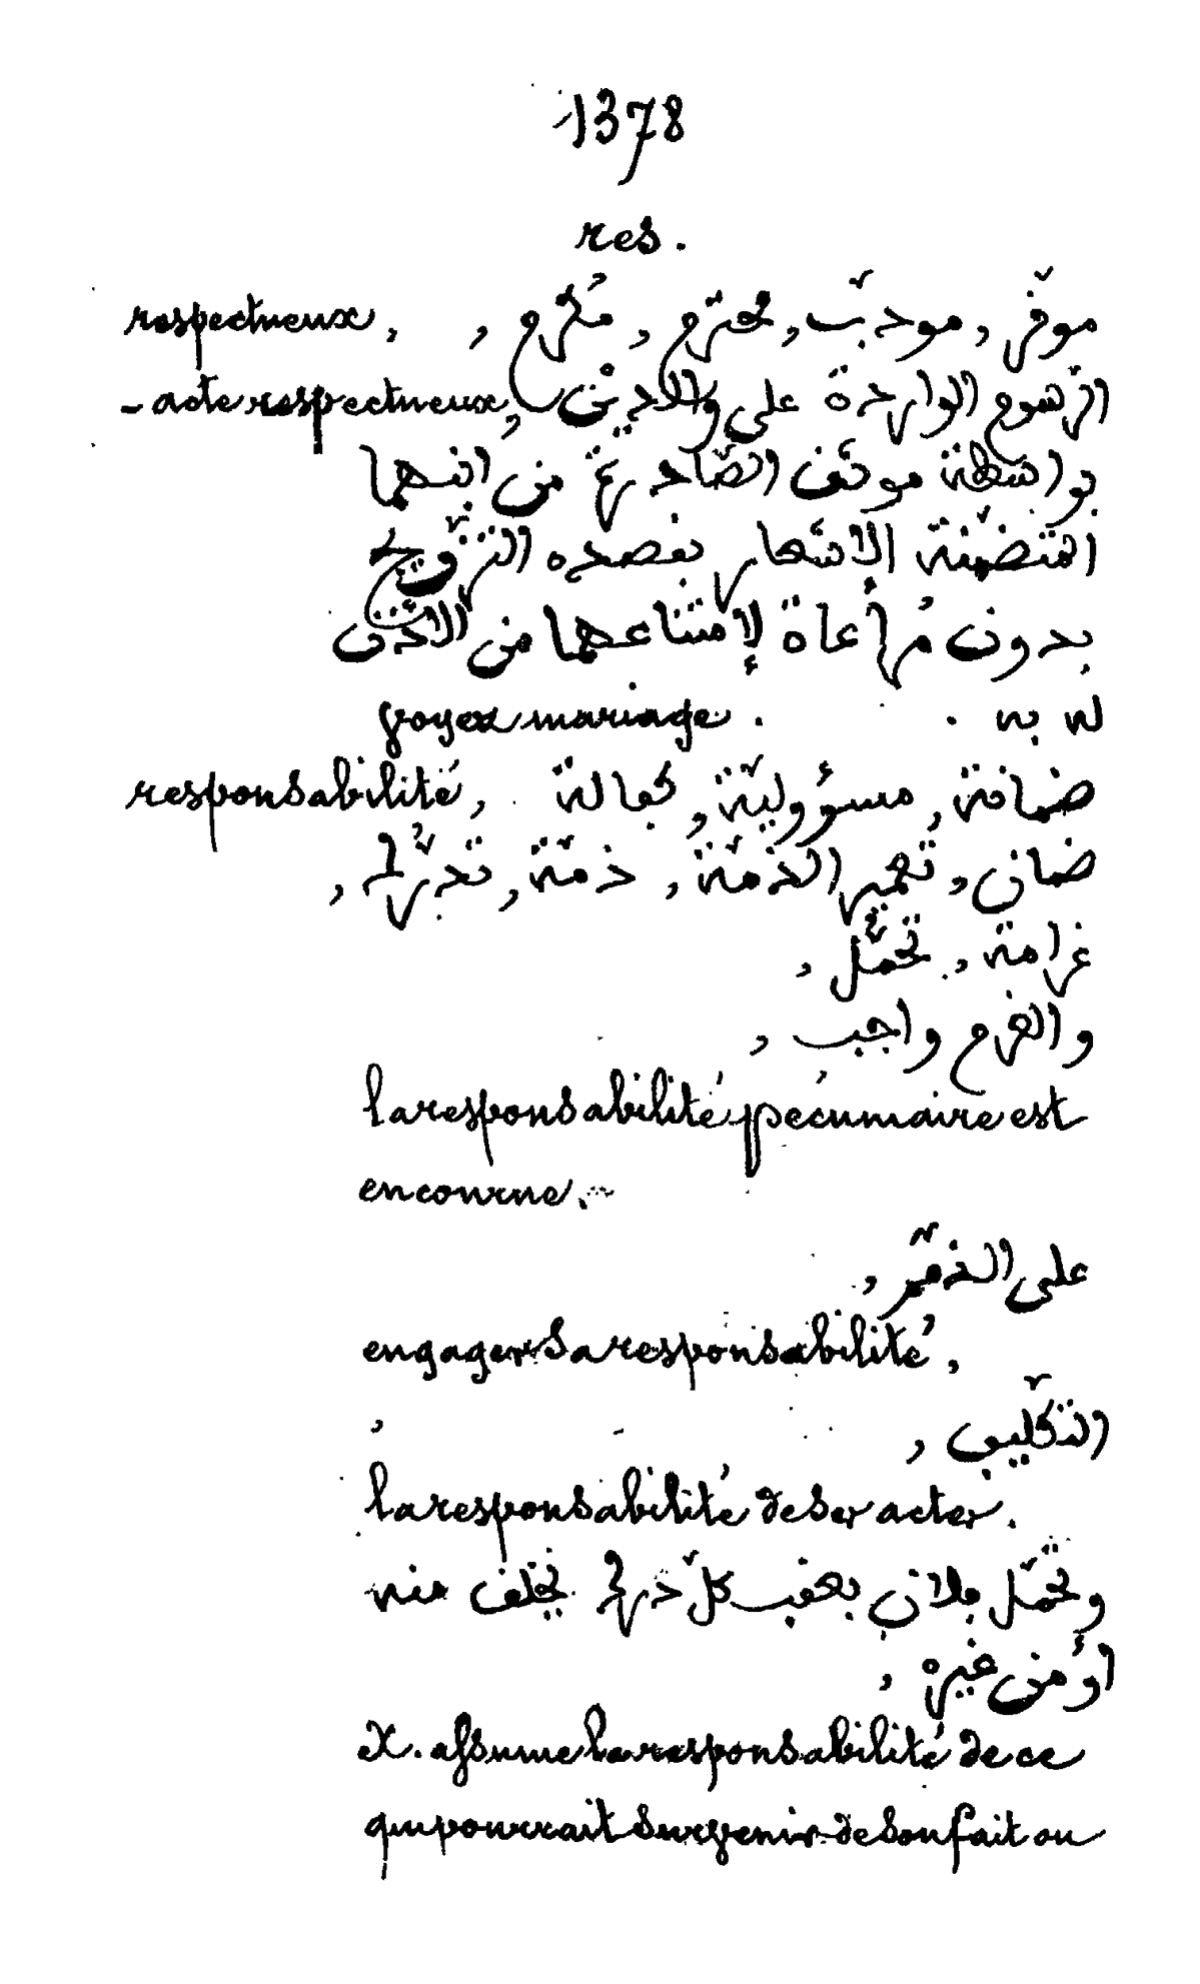 1378
res.
respectueux, موقّر, مودّب, محترم, مُكرّم,
- acte respectueux, الرّسوم الواردة على والديْن
بواسطة موثّف الصّادرة من ابنهما
المتضمّنة الإشهار بقصده التزّويج
بدون مُراعاة لإمتناعهما من الأذن
له به . voyez mariage.
responsabilité, ضمانة, مسؤوليّة, كفالة
ضمان, تعمير الذمّة, ذمّة, تدرّك,
غرامة, تحمّل,
والغرم واجب,
la responsabilité pécuniaire est
encourue.
على الذمّم,
engager sa responsabilité,
التكليف,
la responsabilité de ses actes.
وتحمّل فلان بعقب كلّ درك يخلف منه
أو من غيره,
X. assume la responsabilité de ce
qui pourrait survenir de son fait ou